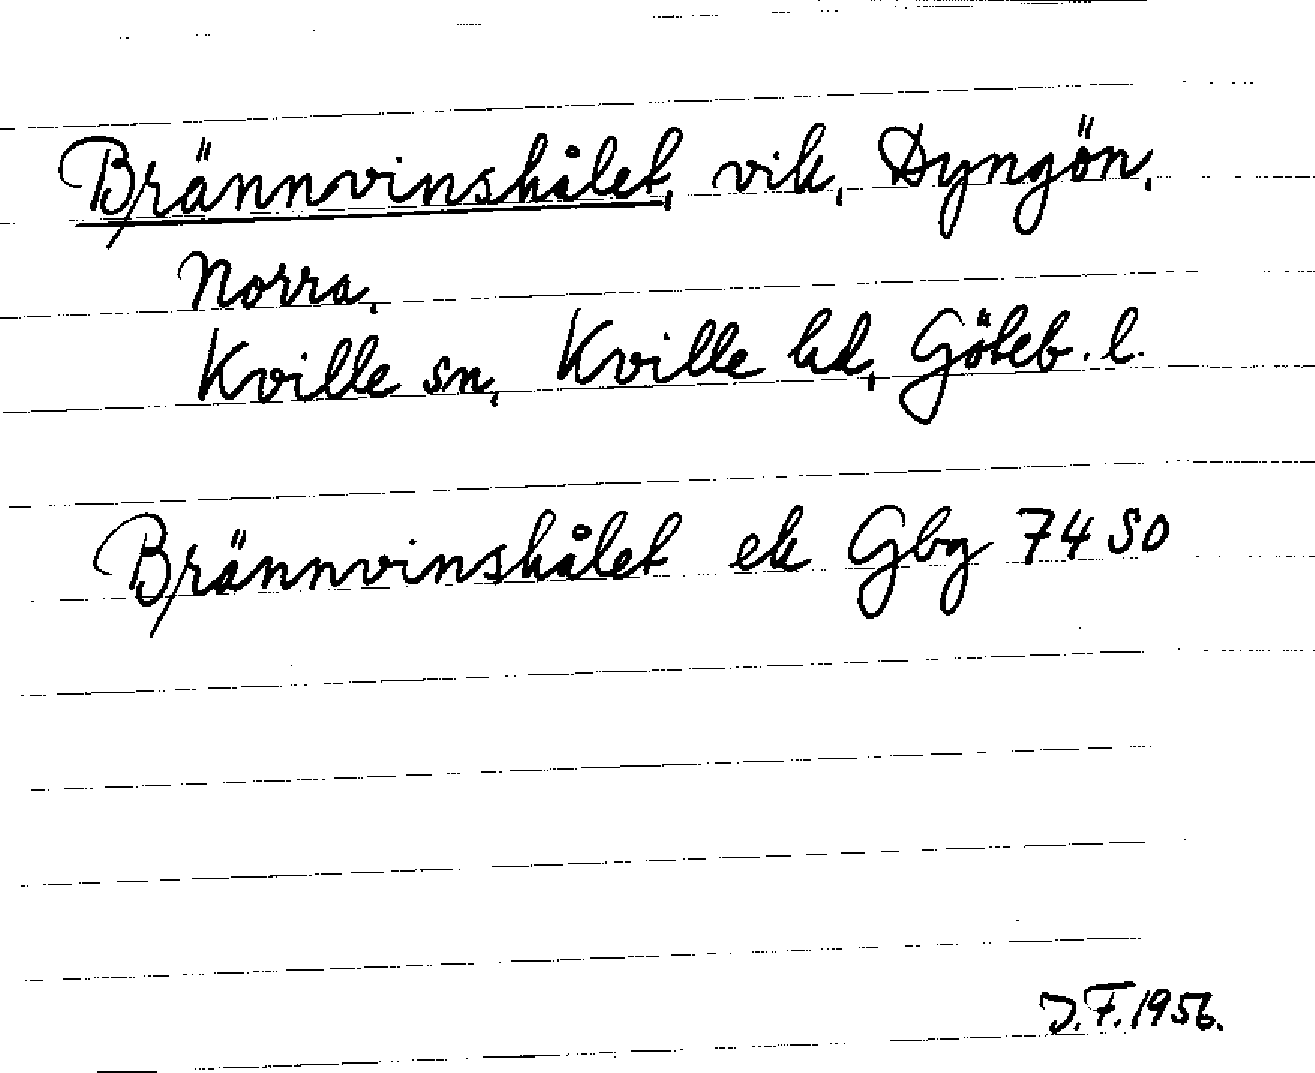 Brännvinshålet, vik, Dyngön,
Norra,
Kville sn, Kville hd, Göteb. l.
Brännvinshålet ek Gbg 74 SO
J.F. 1956.